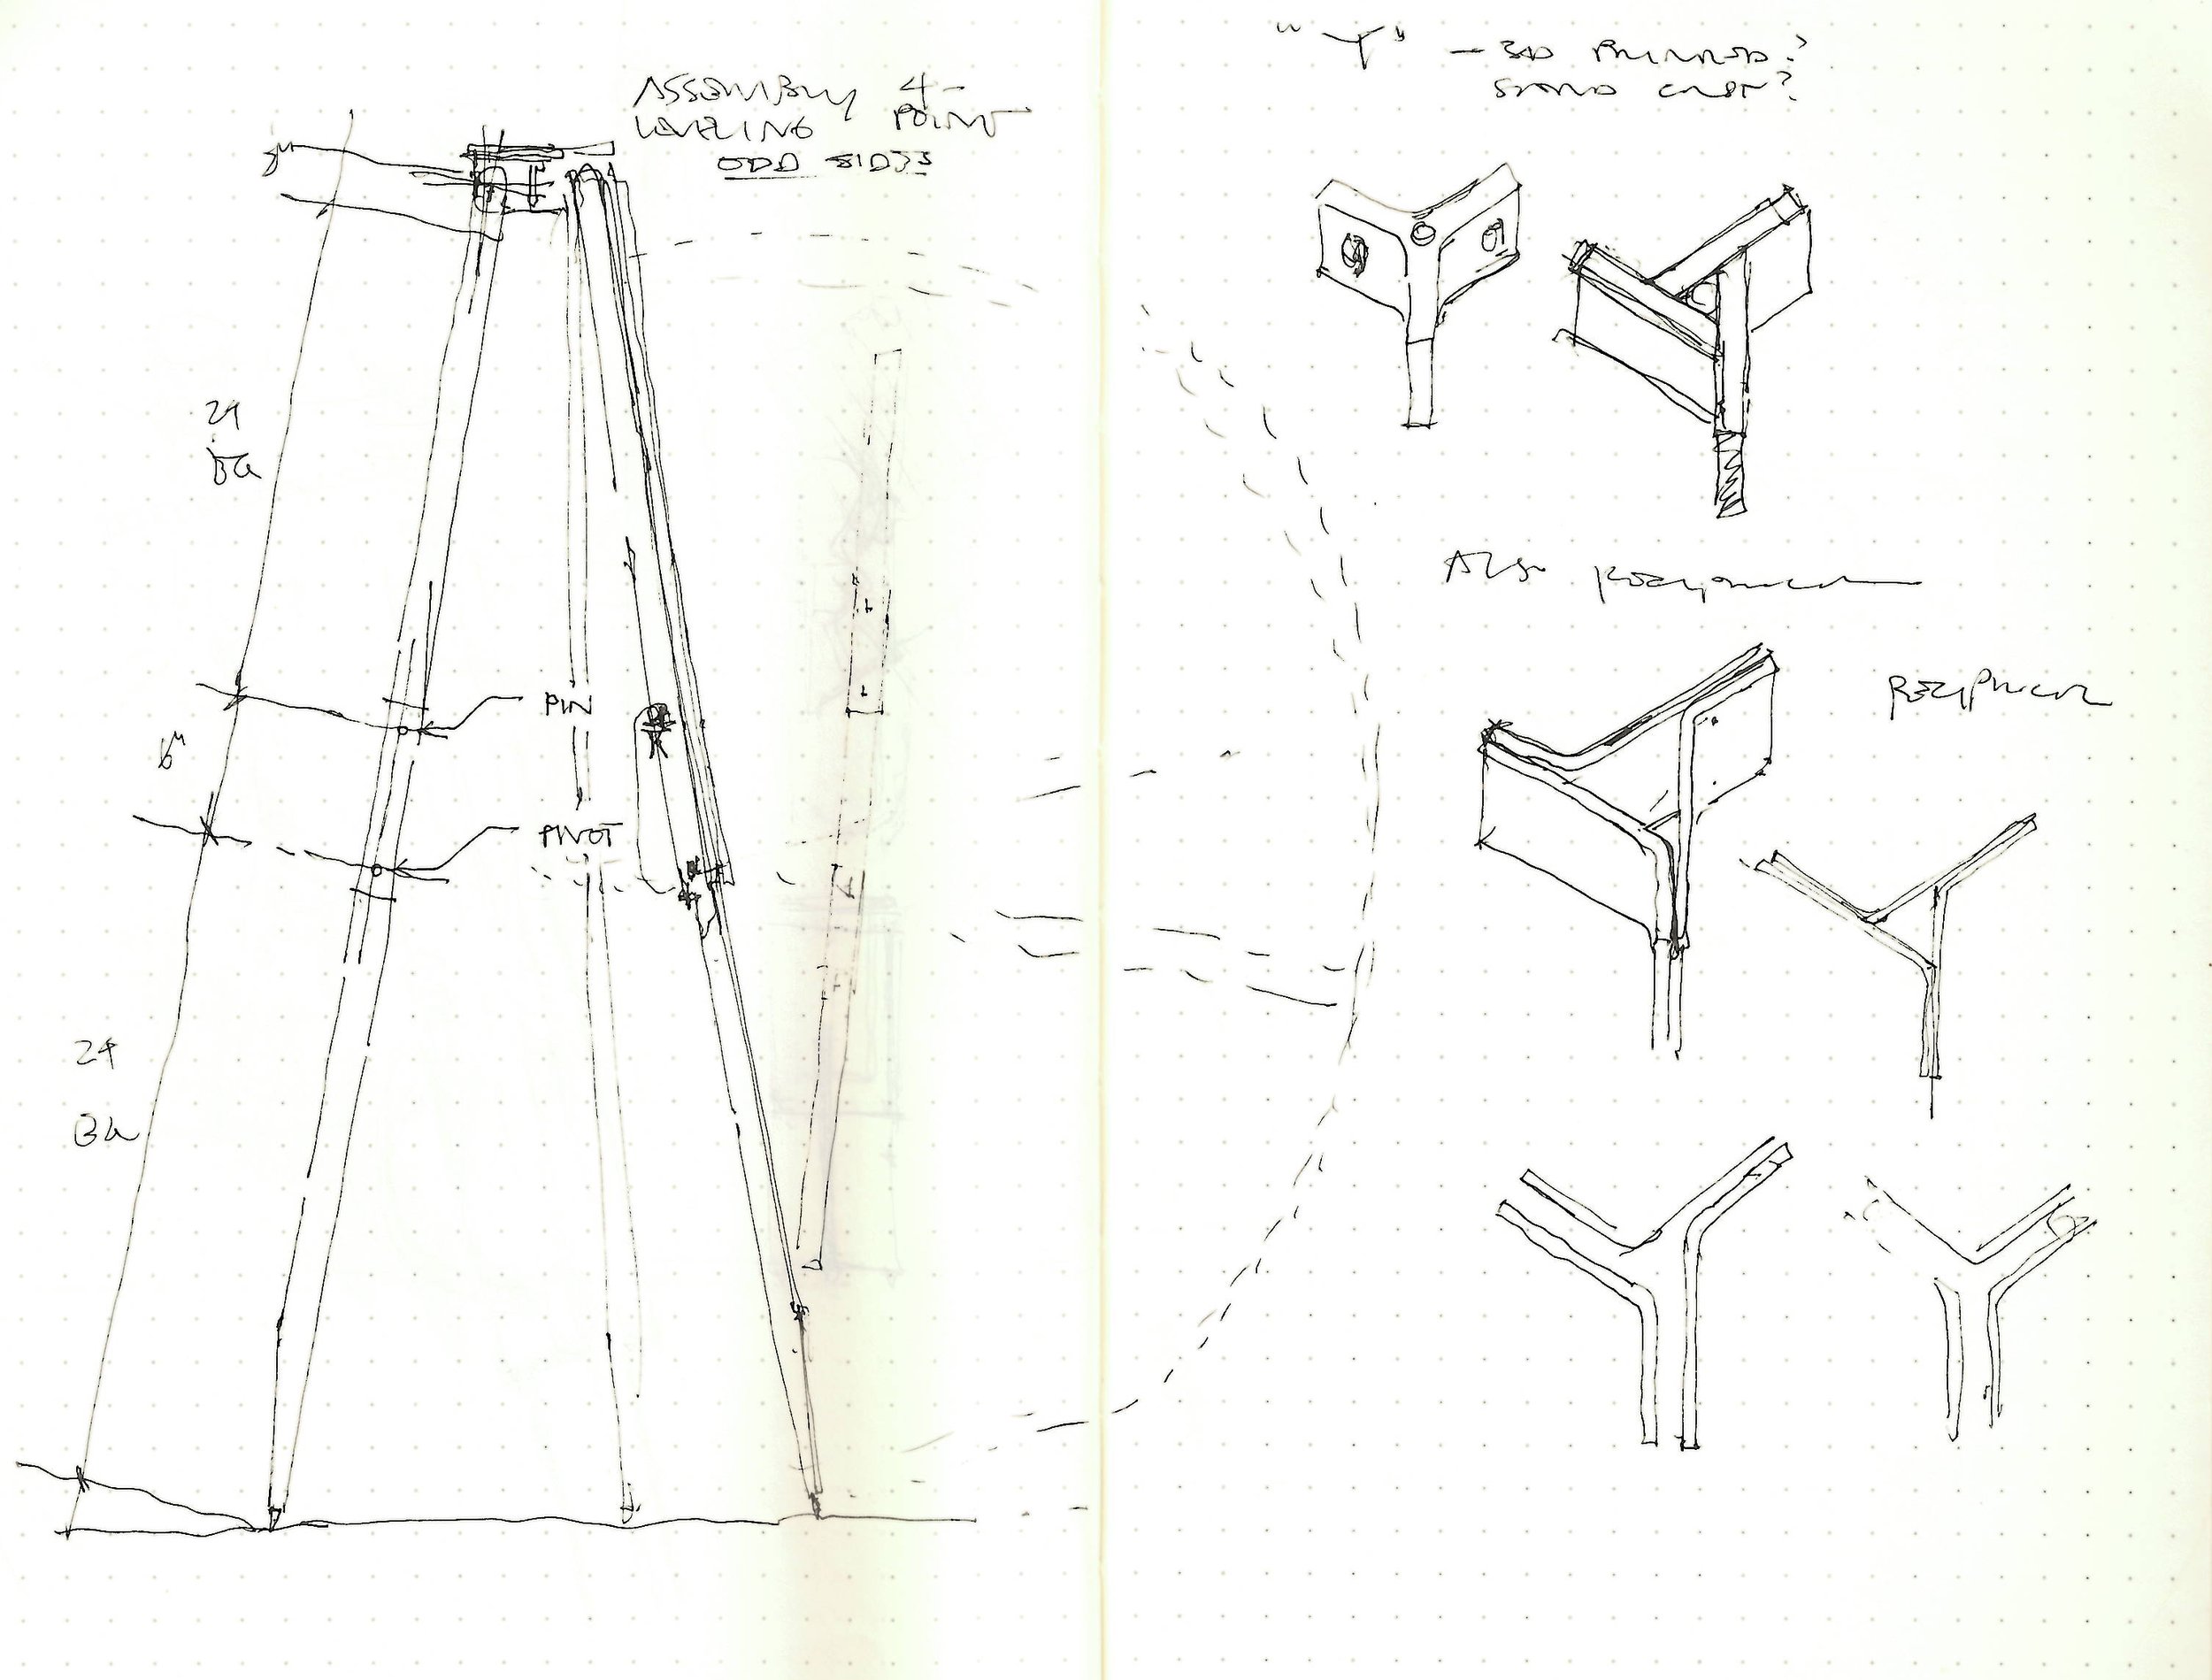 ASSEMBLY 4-
LEVELING POINT
ODD SIDES
3"
24
6"
PIN
PIVOT
24
"Y" — 3D PRINTED?
SAND CAST?
ALSO RECIPROCAL
RECIPROCAL